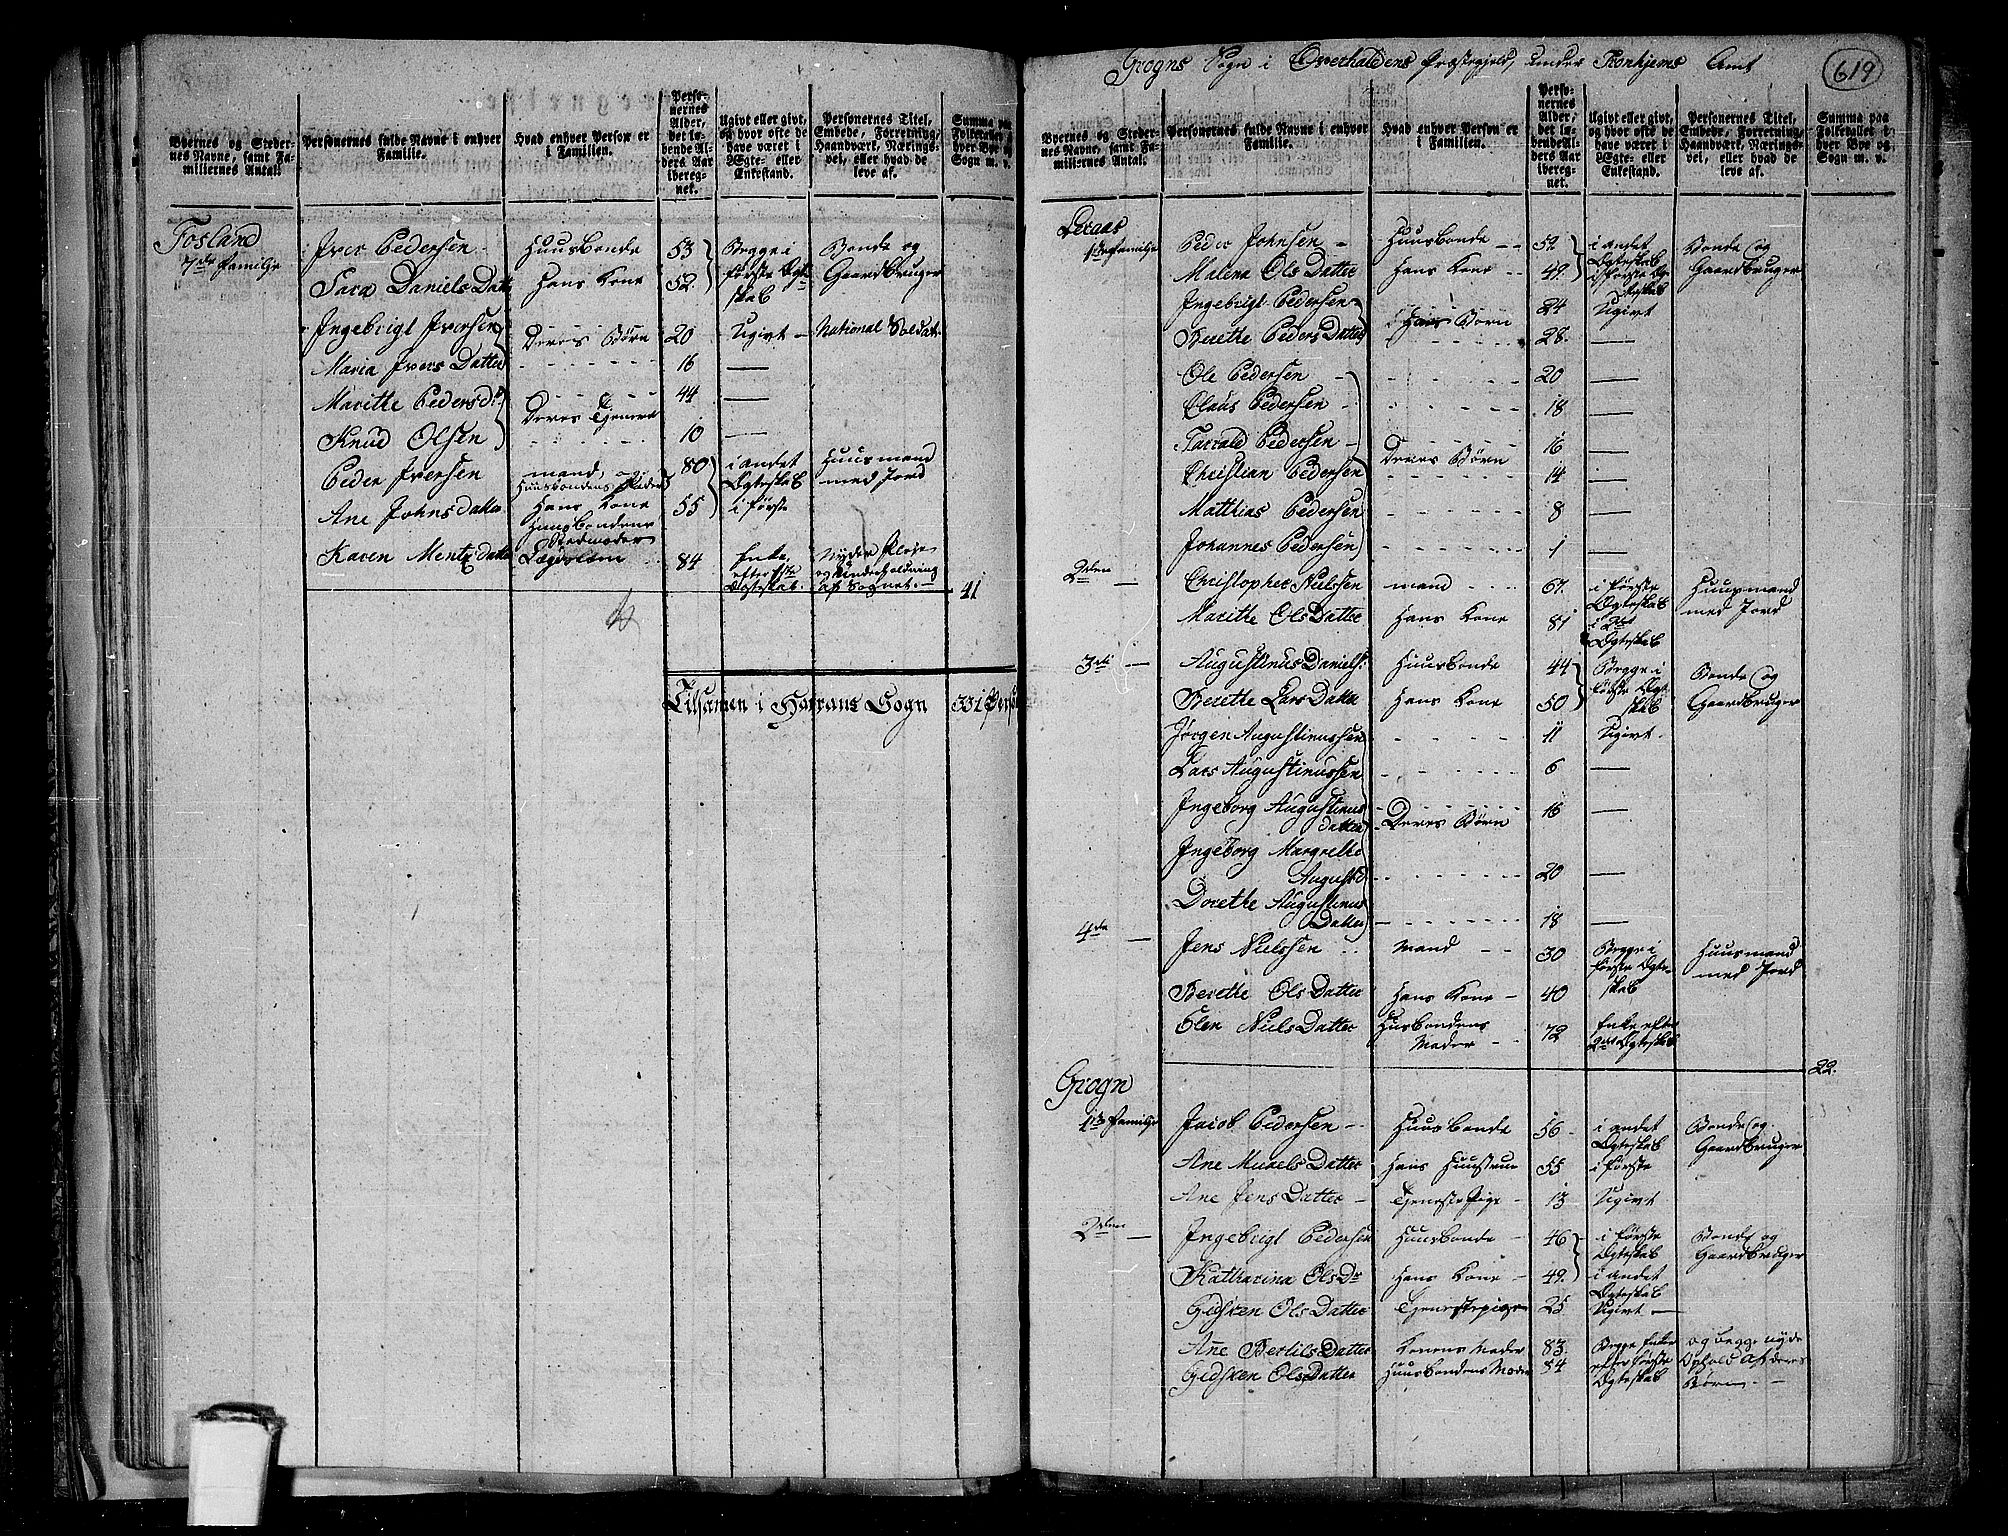 Byernes og Stedernes Navne, samt Familiernes Antal.
Personernes fulde Navne i enhver Familie.
Hvad enhver Person er i Familien.
Personernes Alder, det løbende Alders Aar iberegnet.
Ugivt eller givt, og hvor ofte de have været i Ægte- eller Enkestand.
Personernes Titel, Embede, Forretning, Haandværk, Næringsvei, eller hvad de leve af.
Summa paa Folketallet i hver Bye og Sogn m. v.
Fosland
7de Familje
Iver Pedersen Huusbonde 53 Begge i Bonde og
Sara Daniels Datter Hans Kone 52 første Ægteskab Gaardbruger
Ingebrigt Iversen Deres Børn 20 Ugivt National Soldat
Maria Ivers Datter 16
Marithe Pedersd 44
Deres Tjenere
Knud Olsen 10
Peder Iversen mand, og Huusbondens Fader 80 i andet Ægteskab Huusmand med Jord
Ane Johnsdatter Hans Kone Huusbondens Stedmoder 55 i første
Karen Mentzdatter Lægdslem 84 Enke efter 1ste Ægteskab Nyder Pleje og Underholdning af Sognet.
41
Tilsamen i Harrans Sogn 331 Pers
Grogns Sogn i Overhaldens Præstegjeld, under Tronhjems Amt
619
Byernes og Stedernes Navne, samt Familiernes Antal.
Personernes fulde Navne i enhver Familie.
Hvad enhver Person er i Familien.
Personernes Alder, det løbende Alders Aar iberegnet.
Ugivt eller givt, og hvor ofte de have været i Ægte- eller Enkestand.
Personernes Titel, Embede, Forretning, Haandværk, Næringsvei, eller hvad de leve af.
Summa paa Folketallet i hver Bye og Sogn m. v.
Leraas
1ste Familje
Peder Johnsen Huusbonde 52 i andet Ægteskab Bonde og
Malena Ols Datter Hans Kone 49 i første Ægteskab Gaardbruger
Ingebrigt Pedersen 24 Ugivt
Hans Børn
Berethe Peders Datter 28
Ole Pedersen 20
Claus Pedersen 18
Tarrald Pedersen 16
Deres Børn
Christian Pedersen 14
Matthias Pedersen 8
Johannes Pedersen 1
2den
Christopher Nielssen mand 67 i første Ægteskab Huusmand
Marithe Ols Datter Hans Kone 81 i 2det Ægteskab med Jord
3die
Augustinus Daniels: Huusbonde 44 Begge i Bonde og
Berethe Lars Datter Hans Kone 50 første Ægteskab Gaardbruger
Jørgen Augustinussen 11 Ugivt
Lars Augustinussen 6
Ingeborg Augustinus datter Deres Børn 16
Ingeborg Margrethe Augustd 20
Dorethe Augustinus Datter 18
4de
Jens Nielssen Mand 30 Begge i første Ægteskab Huusmand med Jord
Berethe Ols Datter Hans Kone 40
Elen Niels Datter Husbondens Moder 72 Enke efter 2det Ægteskab
22.
Grogn
1ste Familje
Jacob Pedersen Huusbonde 56 i andet Ægteskab Bonde og Gaardbruger
Ane Mikels Datter Hans Huustrue 55 i første
Ane Jens Datter Tjenestepige 13 Ugivt
2den
Ingebrigt Pedersen Huusbonde 46 i første Ægteskab Bonde og Gaardbruger
Katharina Ols Dr Hans Kone 49 i andet Ægteskab
Gidsken Ols Datter Tjenestepige 25 Ugivt
Ane Bertils Datter Konens Moder 83 Begge Enker og begge nyde
Gidsken Ols Datter Huusbondens Moder 84 efter første Ægteskab Ophold af deres Børn